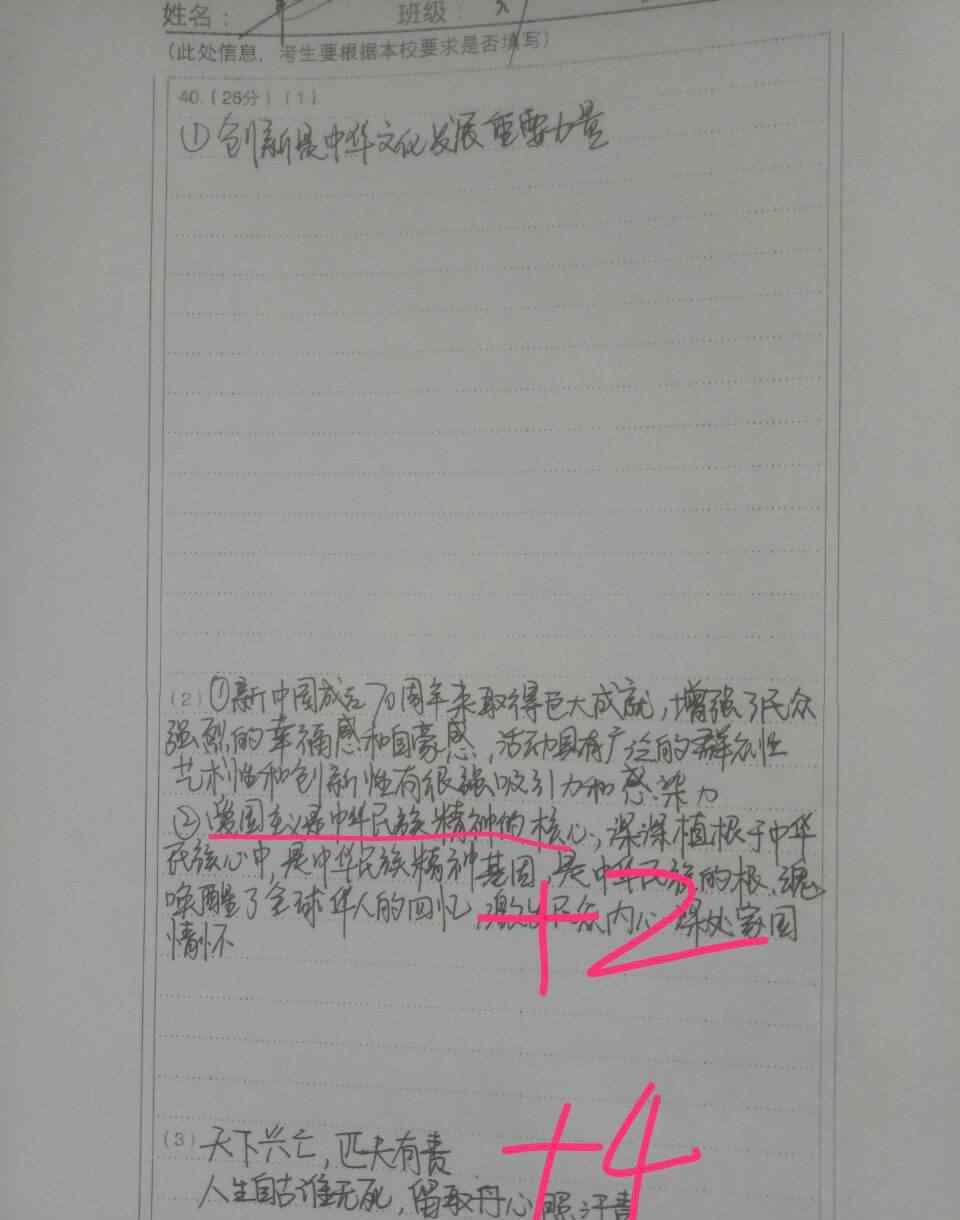 姓名： 班级：
(此处信息，考生要根据本校要求是否填写)
40.(26分)(1)
①创新是中华文化发展重要力量
(2)①新中国成立70周年来取得巨大成就，增强了民众
强烈的幸福感和自豪感，活动具有广泛的群众性
艺术性和创新性有很强吸引力和感染力
②爱国主义是中华民族精神的核心，深深植根于中华
民族心中，是中华民族精神基因，是中华民族的根、魂
唤醒了全球华人的回忆，激发民众内心深处家国
情怀
+2
(3)天下兴亡，匹夫有责
+4
人生自古谁无死，留取丹心照汗青